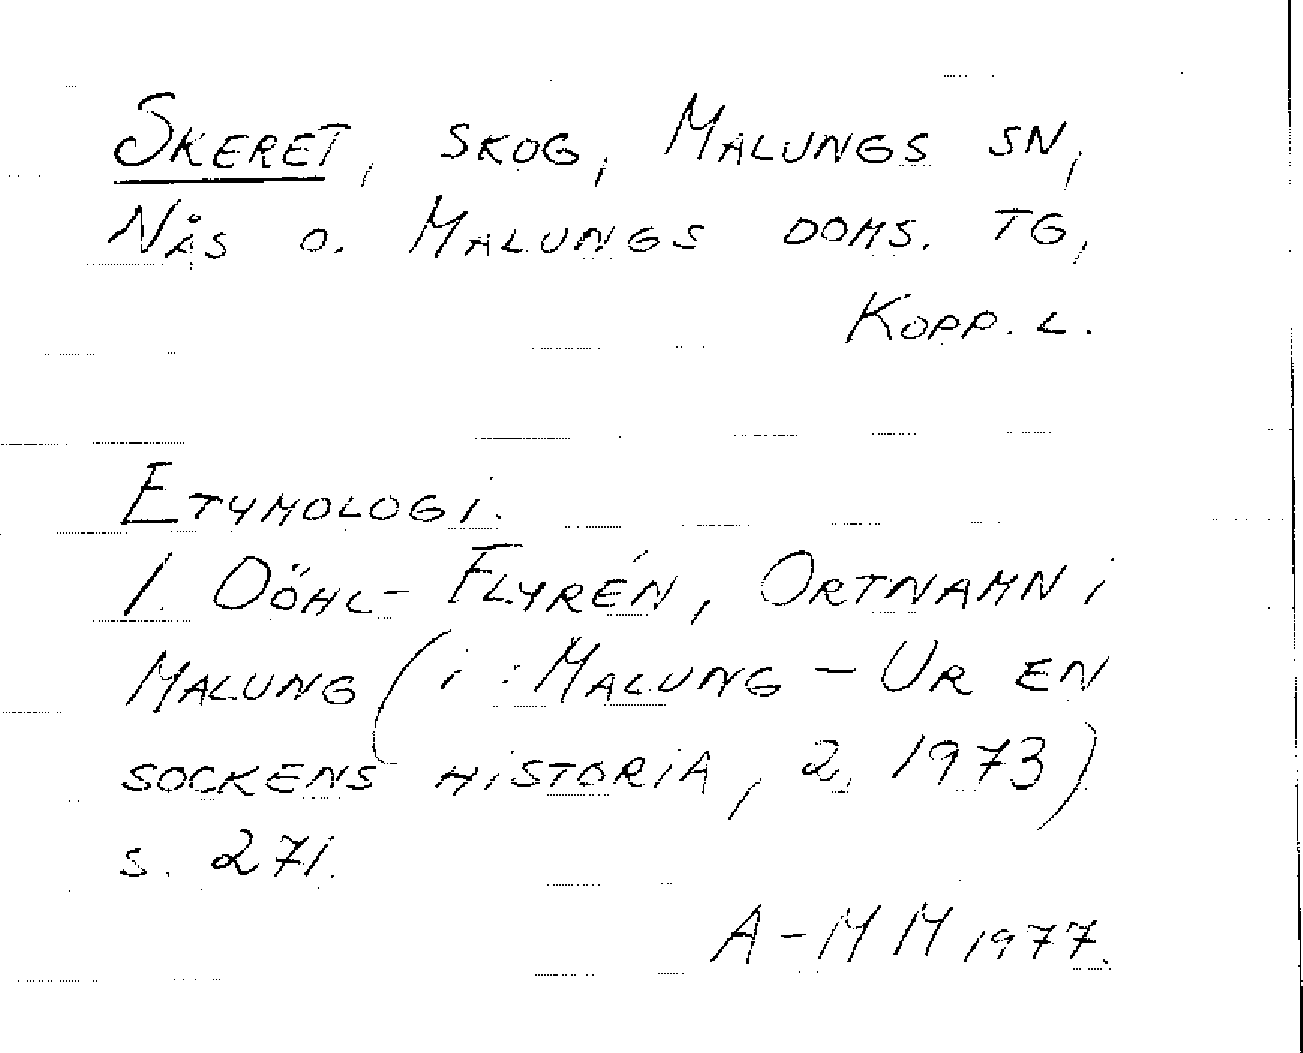 SKERET, SKOG, MALUNGS SN,
NÅS O. MALUNGS DOMS. TG,
KOPP. L.
ETYMOLOGI.
I. DÖHL-FLYRÉN, ORTNAMN i
MALUNG (i: MALUNG - UR EN
SOCKENS HISTORIA, 2, 1973)
S. 271.
A-M M 1977.